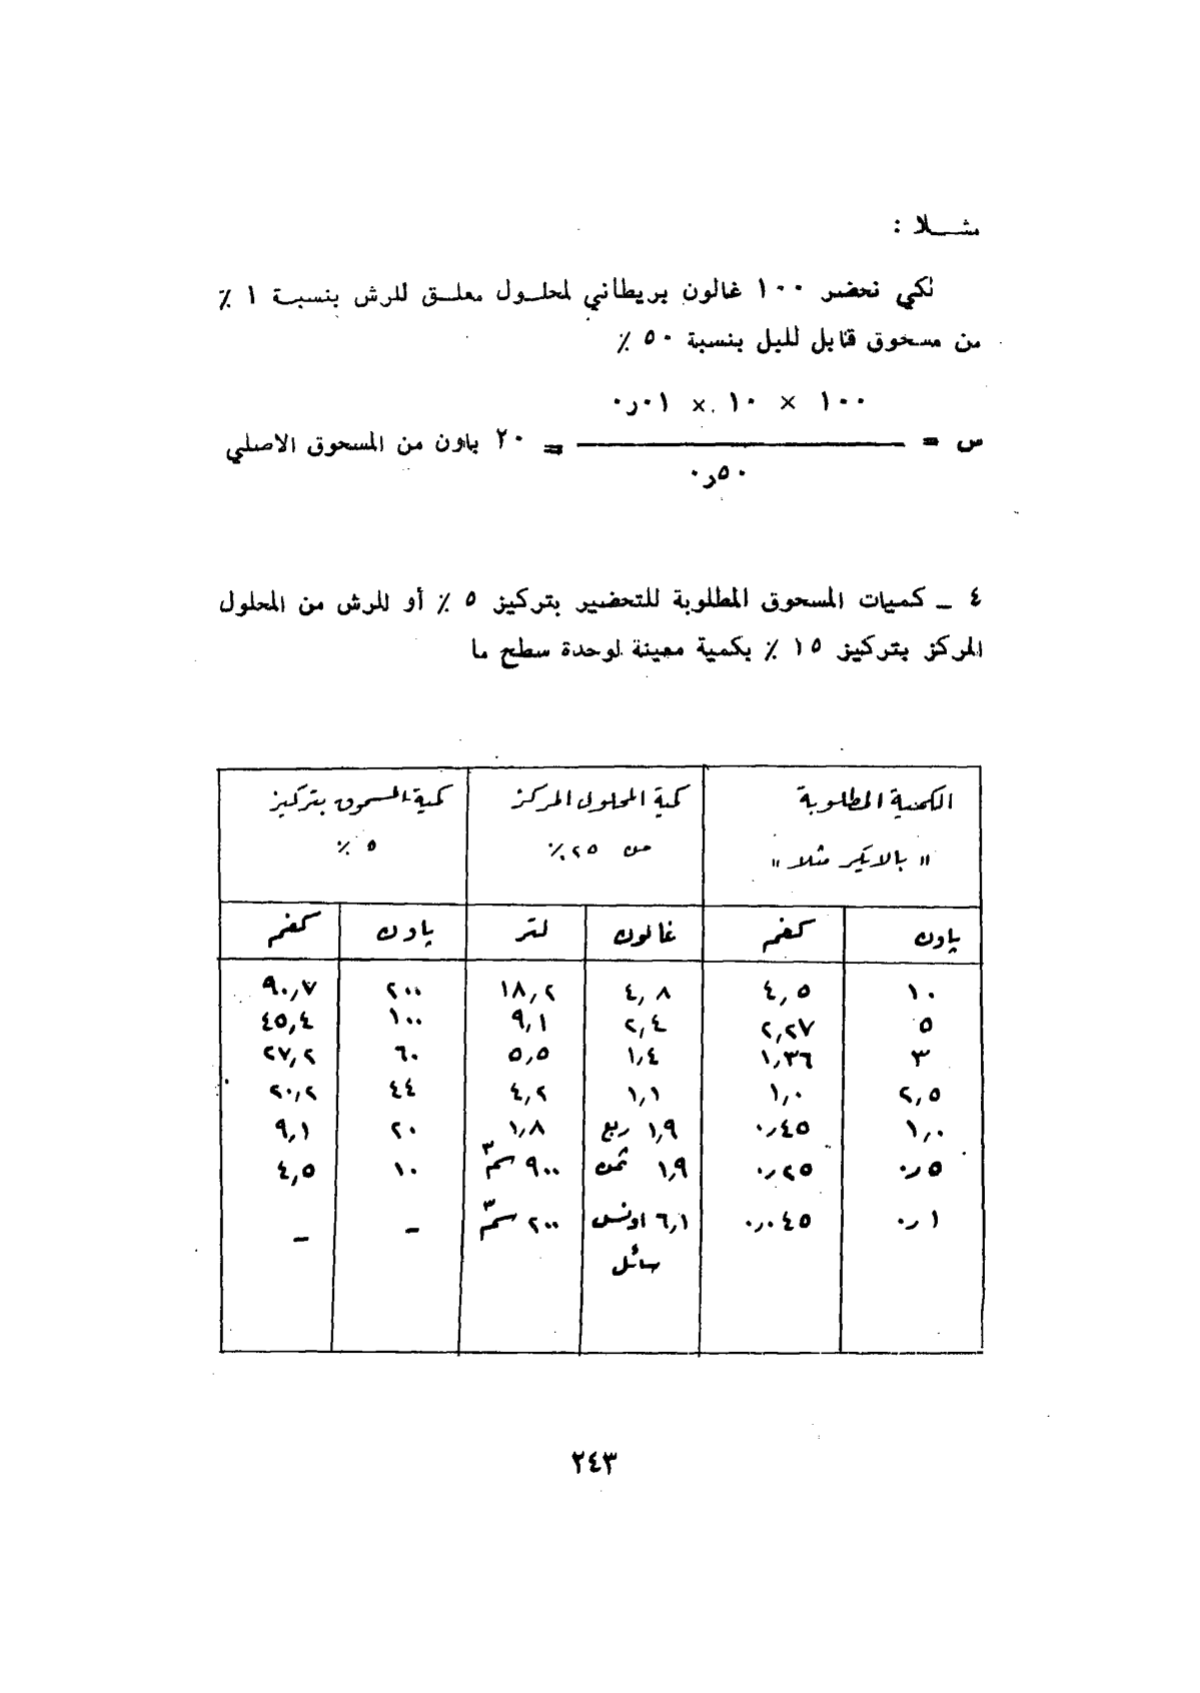 مثــلا :
لكي نحضر ١٠٠ غالون بريطاني لمحلــول معلــق للرش بنسبــة ١ ٪
من مسحوق قابل للبل بنسبة ٥٠ ٪
١٠٠ × ١٠ × ٠١ر٠
س = ــــــــــ = ٢٠ باون من المسحوق الاصلي
٥٠ر٠
٤ ــ كميات المسحوق المطلوبة للتحضير بتركيز ٥ ٪ أو للرش من المحلول
المركز بتركيز ١٥ ٪ بكمية معينة لوحدة سطح ما
الكمية المطلوبة كمية المحلول المركز كمية المسحوق بتركيز
" بالايكر مثلا " من ٢٥٪ ٥ ٪
پاون كغم غالون لتر پاون كغم
١٠ ٤,٥ ٤,٨ ١٨,٢ ٢٠٠ ٩٠,٧
٥ ٢,٢٧ ٢,٤ ٩,١ ١٠٠ ٤٥,٤
٣ ١,٣٦ ١,٤ ٥,٥ ٦٠ ٢٧,٢
٢,٥ ١,٠ ١,١ ٤,٢ ٤٤ ٢٠,٢
١,٠ ٠,٤٥ ١,٩ ربع ١,٨ ٢٠ ٩,١
٥ر٠ ٠,٢٥ ١,٩ ثمن ٩٠٠ سم٣ ١٠ ٤,٥
١ر٠ ٠,٠٤٥ ٦,١ اونس ٢٠٠ سم٣ – –
سائل
٢٤٣